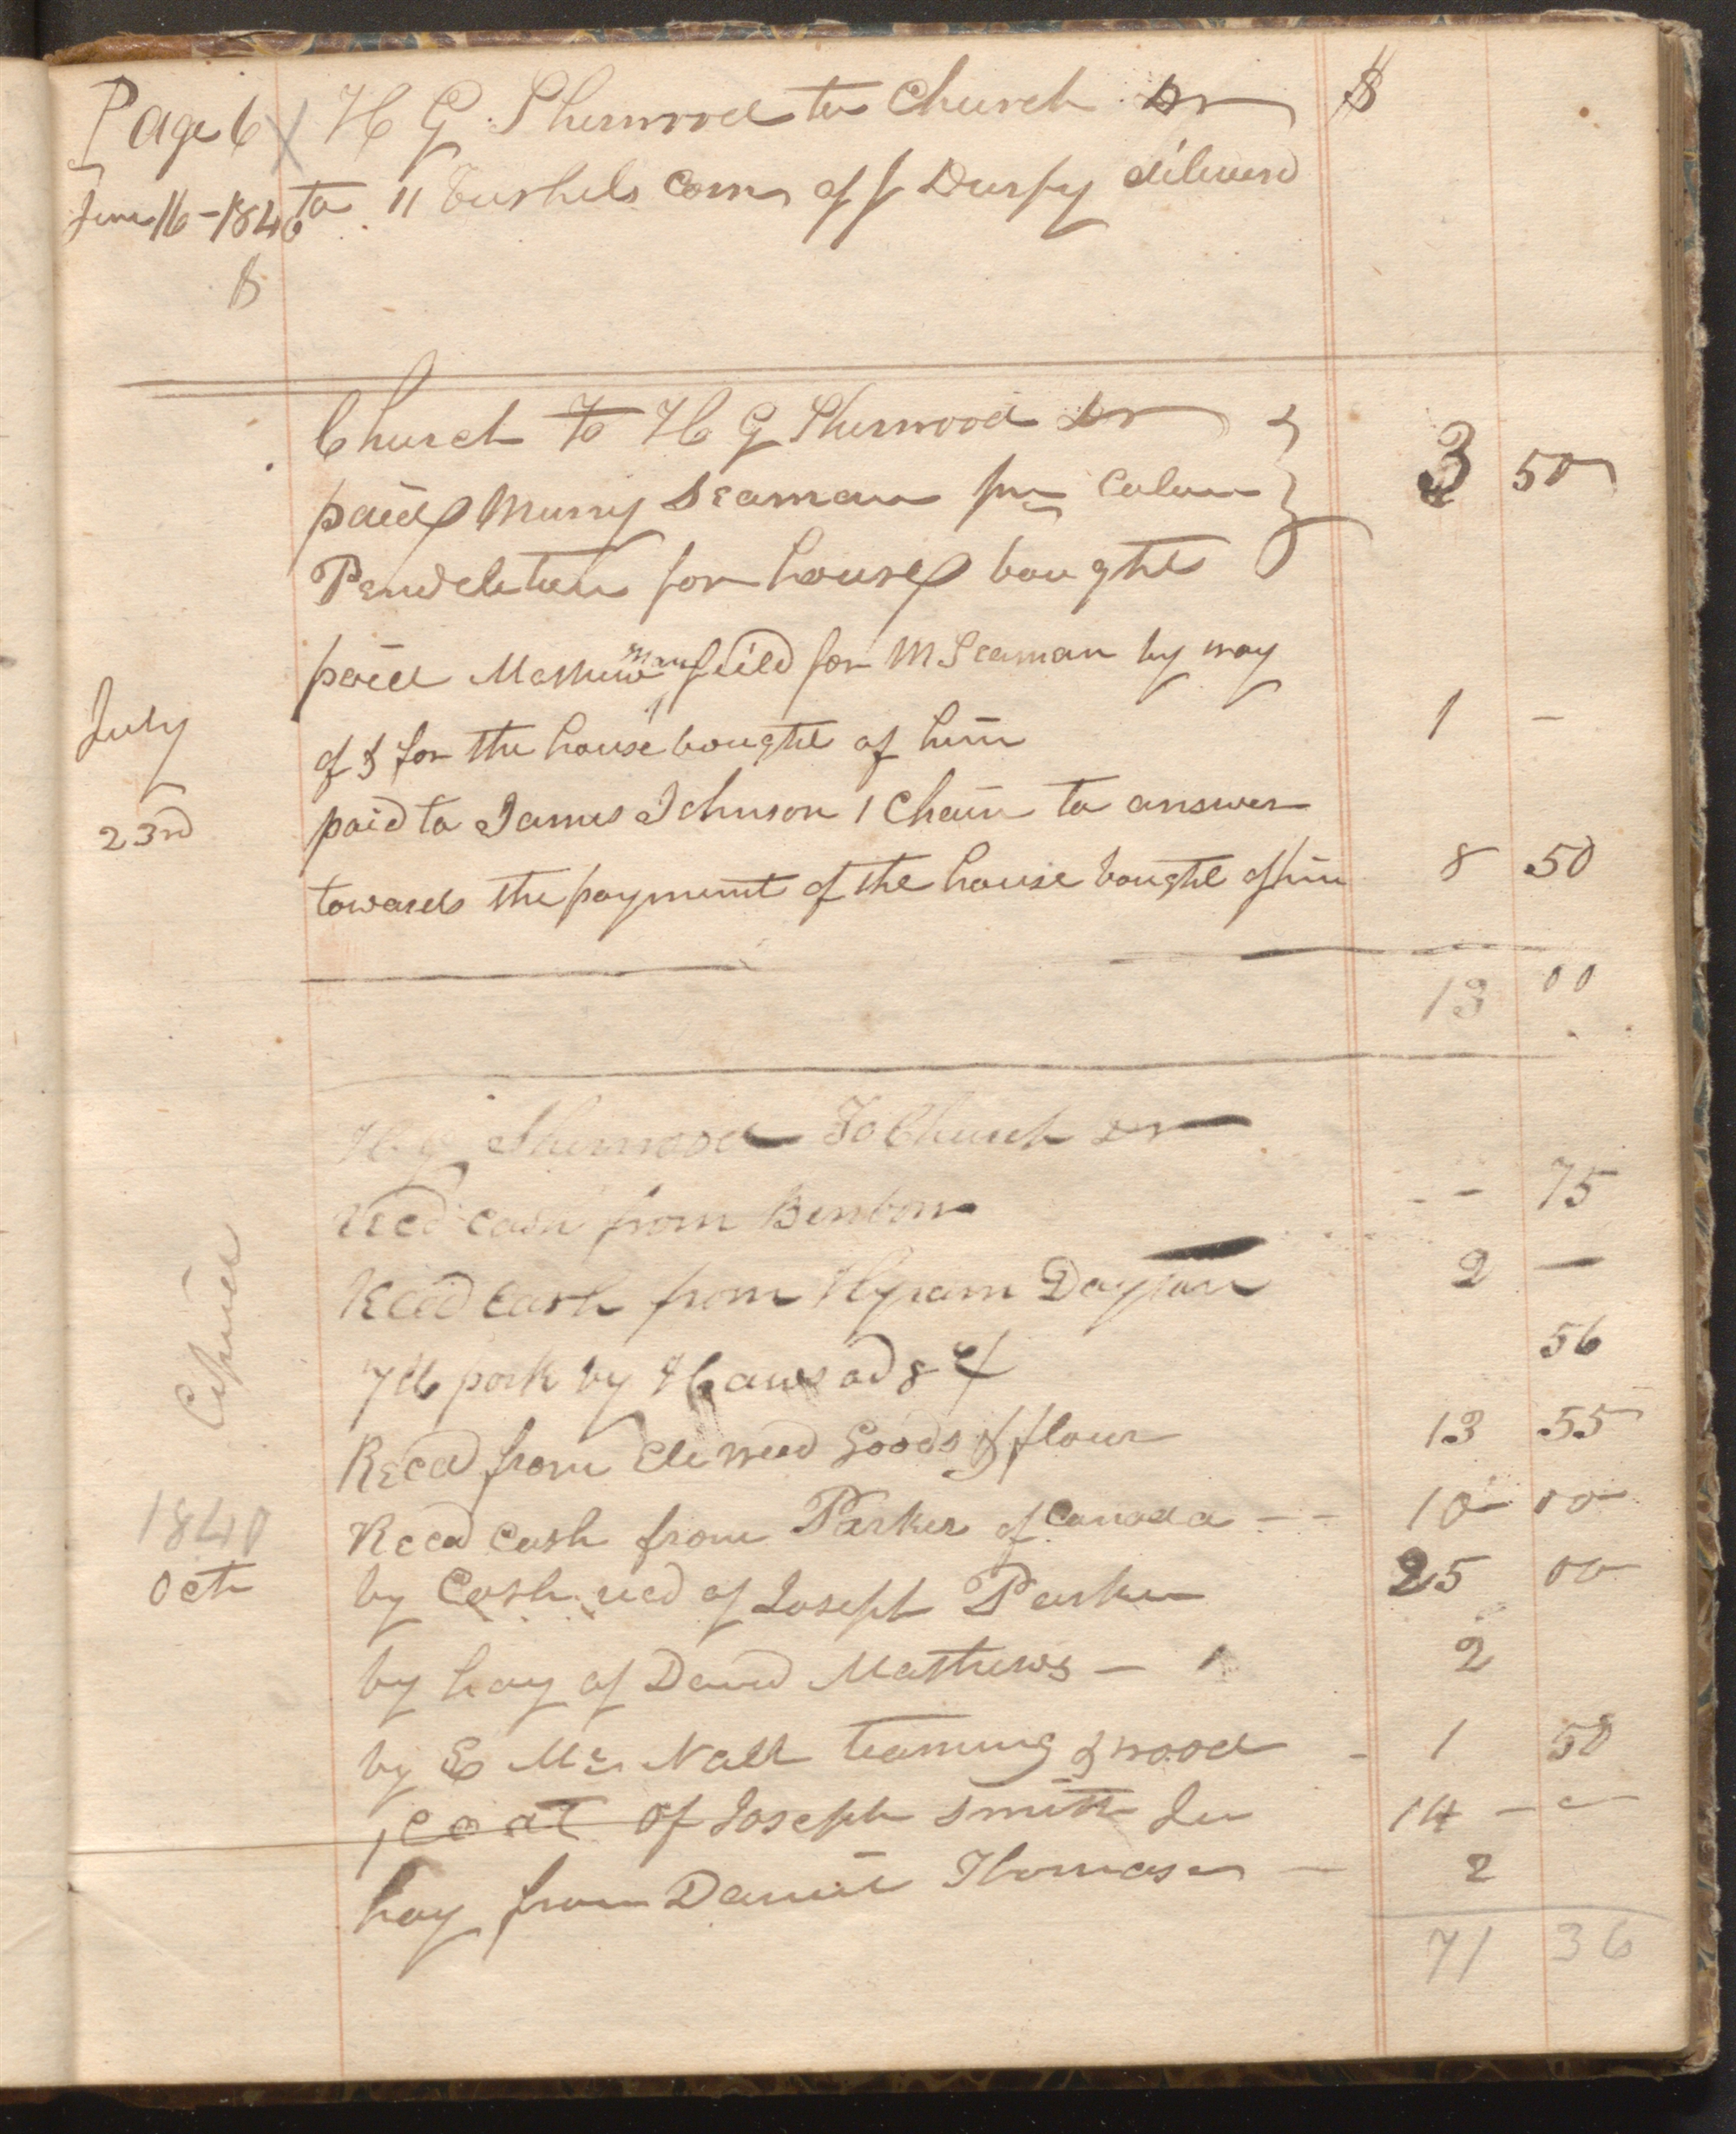 Page 6 X H G Sherwood to Church Dr $
June 16 - 1840 to 11 bushels corn of J Durfy diliverd
8
Church To H G Sherwood Dr
paid Murry Seaman for Calvin 3 50
Pendeleton for house bought
paid Mathew Manfield for M Seaman by way
July of $ for the house bought of him 1 -
23rd paid to James Johnson 1 Chain to answer
towards the payment of the house bought of him 8 50
13 00
H G Sherwood To Church Dr
Recd cash from Benbow - - 75
Recd cash from Hyram Dayton 2 -
7 lb pork by Haws ad 8 cf 56
Recd from Ele Weed Goods & flour 13 55
Copied
1840 Recd Cash from Parker of Canada - - 10 00
Oct by Cash recd of Joseph Parker 25 00
by hay of David Mathews - 2
by E Mc Nall teaming & wood - 1 50
1 coat of Joseph Smith Jr 14 - -
hay from Daniel Thomas - 2
71 36